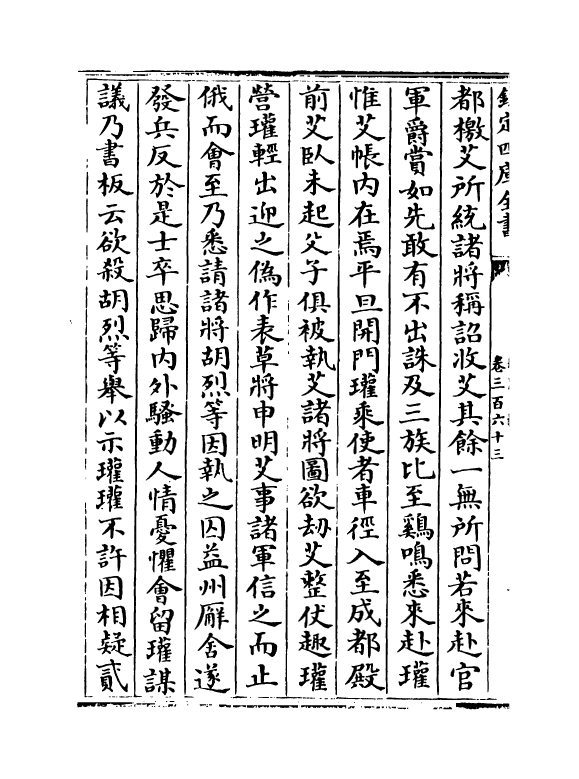 欽定四庫全書
卷三百六十三
都檄艾所統諸將稱詔收艾其餘一無所問若來赴官
軍爵賞如先敢有不出誅及三族比至鷄鳴悉來赴瓘
惟艾帳内在焉平旦開門瓘乘使者車徑入至成都殿
前艾臥未起父子俱被執艾諸將圖欲刼艾整仗趣瓘
營瓘輕出迎之偽作表草將申明艾事諸軍信之而止
俄而會至乃悉請諸將胡烈等因執之囚益州廨舍遂
發兵反於是士卒思歸内外騷動人情憂懼會留瓘謀
議乃書板云欲殺胡烈等舉以示瓘瓘不許因相疑貳